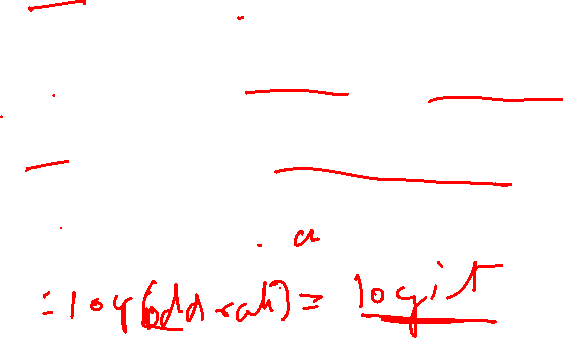 a
= log(odd rati) = logit